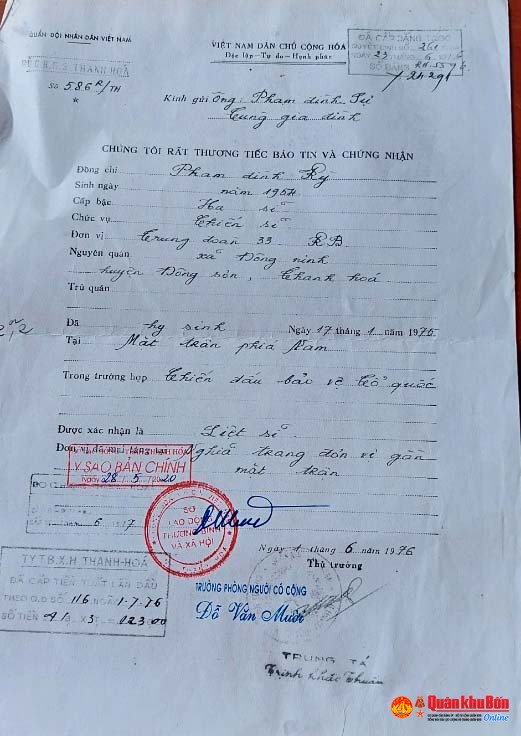 QUÂN ĐỘI NHÂN DÂN VIỆT NAM
VIỆT NAM DÂN CHỦ CỘNG HÒA
Độc lập - Tự do - Hạnh phúc
THANH HOÁ
Số 586 /TH
ĐÃ CẤP BẰNG
Kính gửi Ông Phạm đình
Cùng gia đình
CHÚNG TÔI RẤT THƯƠNG TIẾC BÁO TIN VÀ CHỨNG NHẬN
Đồng chí Phạm đình Kỳ
Sinh ngày năm 1954
Cấp bậc Hạ sĩ
Chức vụ Chiến sĩ
Đơn vị Trung đoàn 33 RB
Nguyên quán xã Đông ninh
huyện Đông sơn, Thanh hoá
Trú quán
Đã hy sinh Ngày 17 tháng 1 năm 1975
Tại Mặt trận phía Nam
Trong trường hợp Chiến đấu bảo vệ Tổ quốc
Được xác nhận là Liệt sĩ
Đơn vị đã mai táng tại Nghĩa trang đơn vị gần
mặt trận
Y SAO BẢN CHÍNH
Ngày 28/5/2020
SỞ
LAO ĐỘNG
THƯƠNG BINH
VÀ XÃ HỘI
Ngày 1 tháng 6 năm 1976
Thủ trưởng
TY T.B.X.H THANH-HOÁ
ĐÃ CẤP TIỀN TUẤT LẦN ĐẦU
THEO Q.Đ SỐ 116 NGÀY 1-7-76
SỐ TIỀN
TRƯỞNG PHÒNG NGƯỜI CÓ CÔNG
Đỗ Văn Mười
TRUNG TÁ
Trịnh Khắc Thuần
Quân khu Bốn
Online